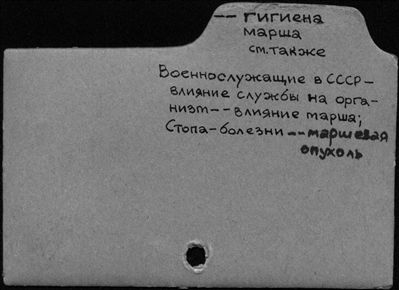 -- гигиена
марша
см. также
Военнослужащие в СССР-
влияние службы на орга-
низм--влияние марша;
Стопа-болезни--маршевая
опухоль